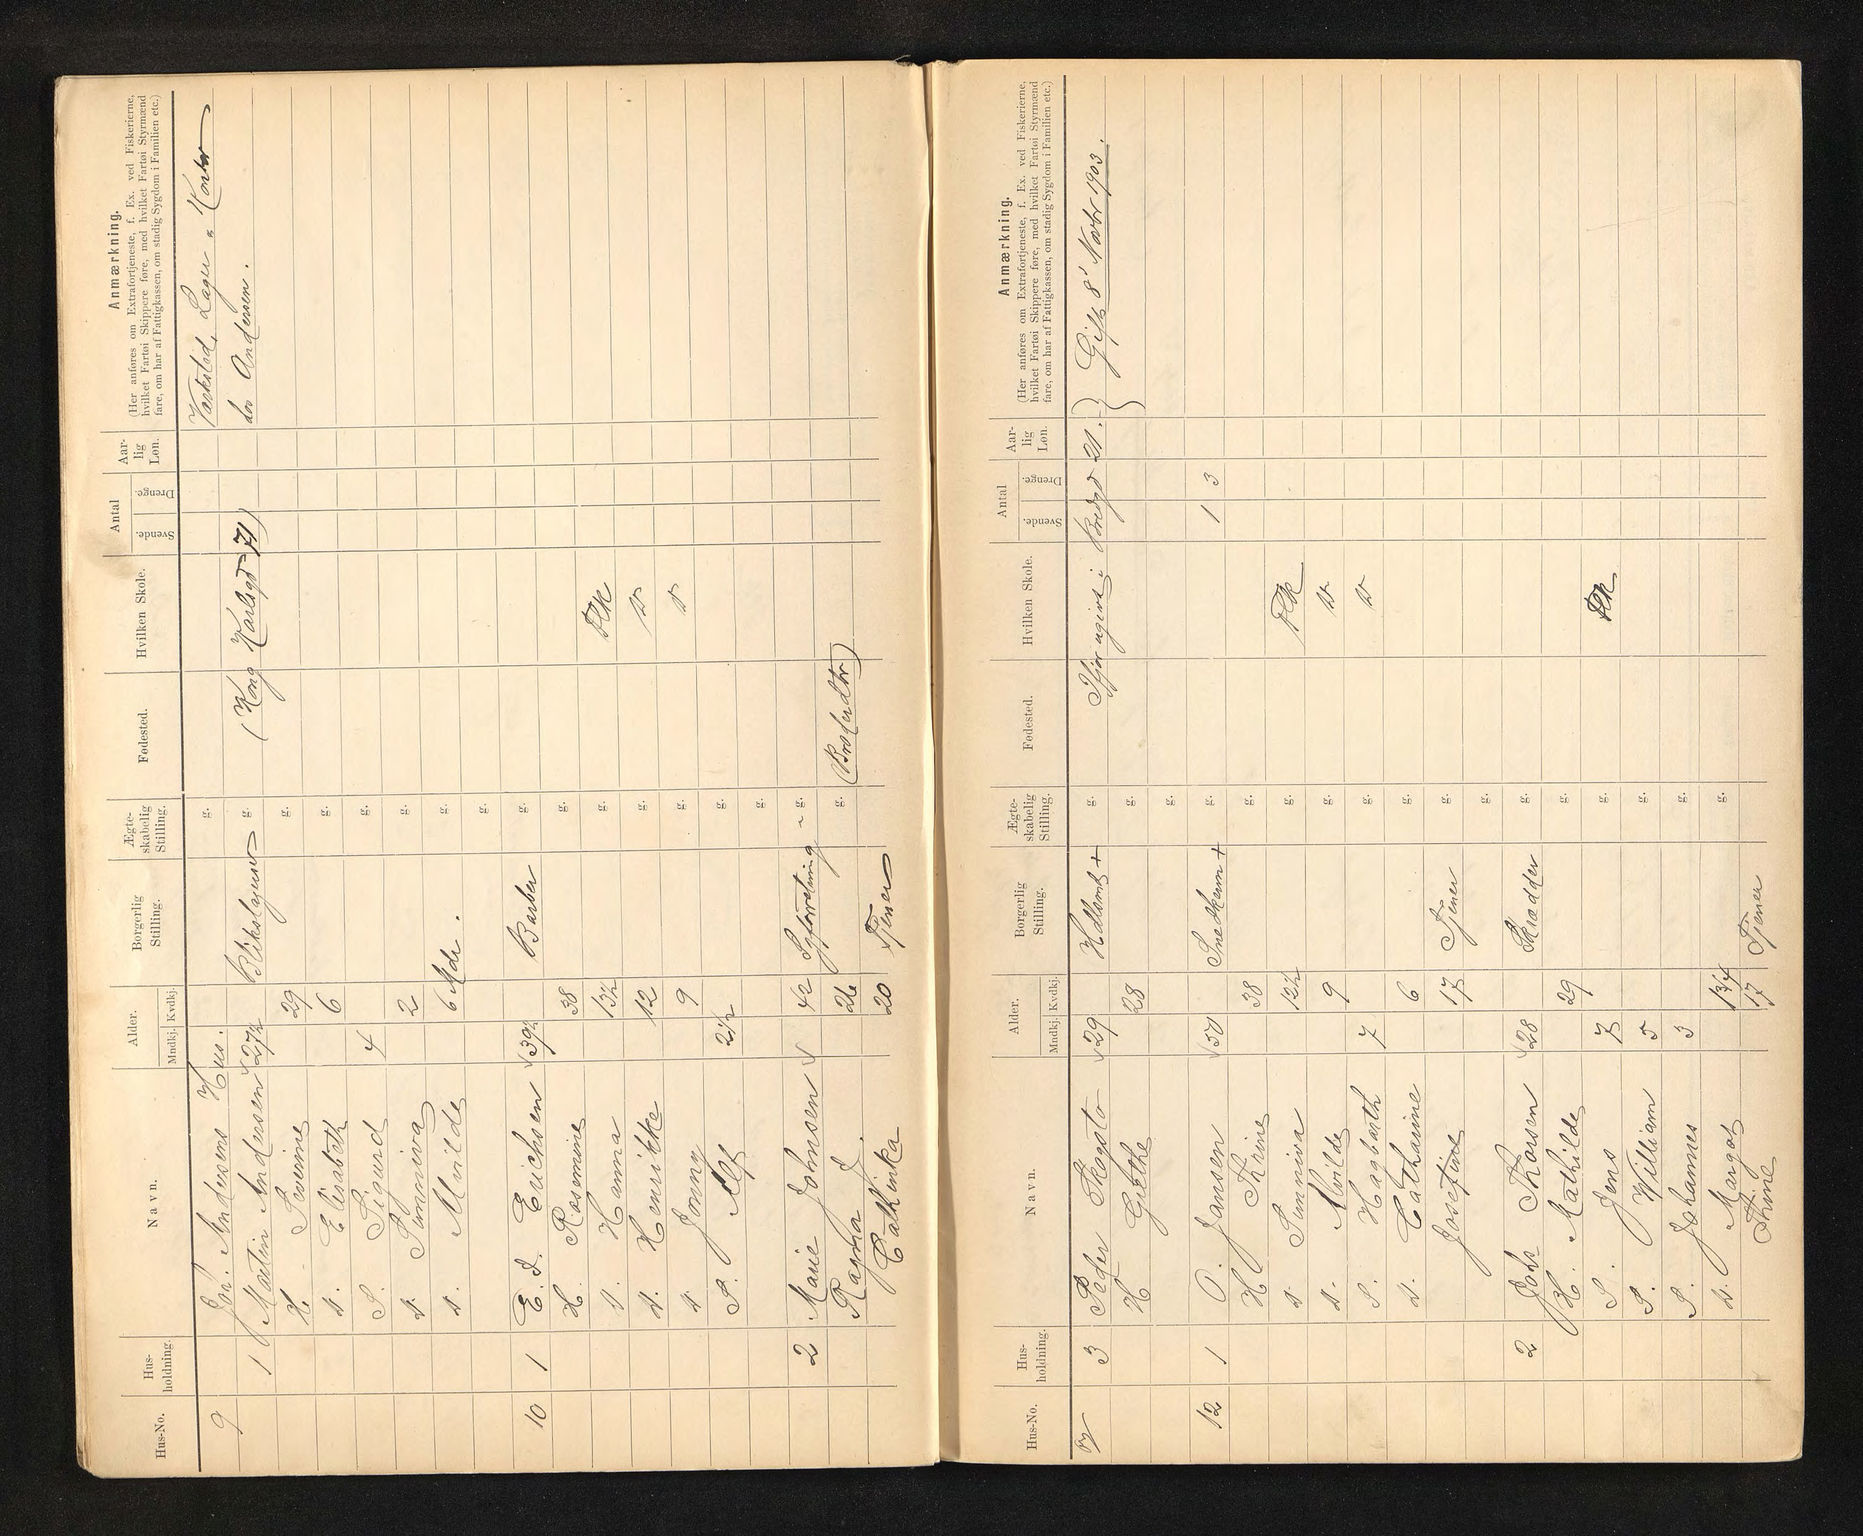 Hus-No.
Hus-holdning.
Navn.
Alder.
Mndkj. Kvdkj.
Borgerlig Stilling.
Ægte-skabelig Stilling.
Fødested.
Hvilken Skole.
Antal
Svende. Drenge.
Aar-lig Løn.
Anmærkning.
(Her anføres om Extrafortjeneste, f. Ex. ved Fiskerierne,
hvilket Fartøi Skippere føre, med hvilket Fartøi Styrmænd
fare, om har af Fattigkassen, om stadig Sygdom i Familien etc.)
9 Joh. Andersens Hus. g. Værksted, Lager & Kontor
1 Martin Andersen 27½ Blikslager g. (Kong Karlsgd 71) for Andersen.
H Severine 29 g.
D. Elisabeth 6 g.
S. Sigurd 4 g.
D. Sunniva 2 g.
D. Alvilde 6 Mdr. g.
g.
10 1 E. J. Erichsen 39½ Barber g.
H. Rasmine 38 g.
D. Hanna 13½ g. Flk
D. Henrikke 12 g. D
D Jenny 9 g. D
S. Alf 2½ g.
g.
2 Marie Johnsen 42 Syforretning g.
Ragna J. 26 g. (Brosterdtr)
Cathinka 20 Tjener
Hus-No.
Hus-holdning.
Navn.
Alder.
Mndkj. Kvdkj.
Borgerlig Stilling.
Ægte-skabelig Stilling.
Fødested.
Hvilken Skole.
Antal
Svende. Drenge.
Aar-lig Løn.
Anmærkning.
(Her anføres om Extrafortjeneste, f. Ex. ved Fiskerierne,
hvilket Fartøi Skippere føre, med hvilket Fartøi Styrmænd
fare, om har af Fattigkassen, om stadig Sygdom i Familien etc.)
3 Peder Skogsto 29 g. Ifjor ugivt i Bredgd 21. } Gift 8' Novbr 1903.
H Grethe 28 g.
g.
12 1 O. Jansen 50 Snedkerm + g. 1 3
H Thrine 38 g.
D Sunniva 12½ g. Flk
D. Alvilde 9 g. D
S. Hagbarth 7 g. D
D. Cathrine 6 g.
Josefine 17 Tjener g.
g.
2 Johs Thorsen 28 Skrædder g.
H. Mathilde 29 g.
S. Jens 7 g. Flk
S. William 5 g.
S. Johannes 3 g.
D. Margot 1¾ g.
Stine 17 Tjener